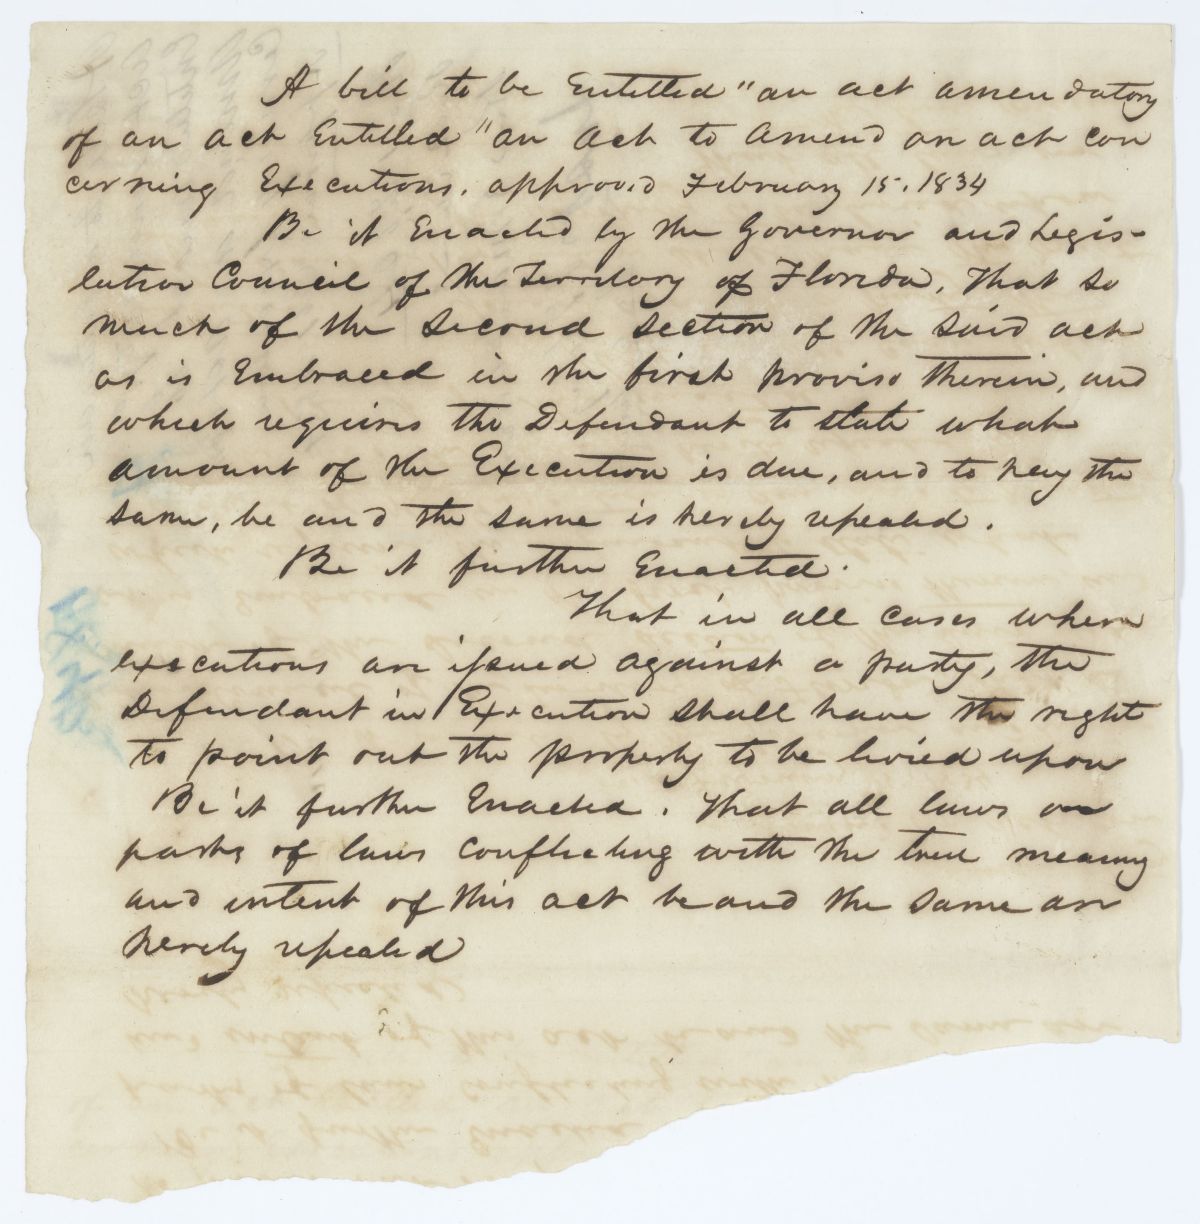 A bill to be Entitled "an act amendatory
of an act Entitled "an act to amend an act con
cerning Executions. approved February 15. 1834
Be it Enacted by the Governor and Legis-
lative Council of the Territory of Florida, That so
much of the second section of the said act
as is Embraced in the first proviso therein, and
which requires the Defendant to state what
amount of the Execution is due, and to pay the
same, be and the same is hereby repealed.
Be it further Enacted.
That in all cases where
executions are issued against a party, the
Defendant in Execution shall have the right
to point out the property to be levied upon
Be it further Enacted. That all laws or
parts of laws conflicting with the true meaning
and intent of this act be and the same are
hereby repealed